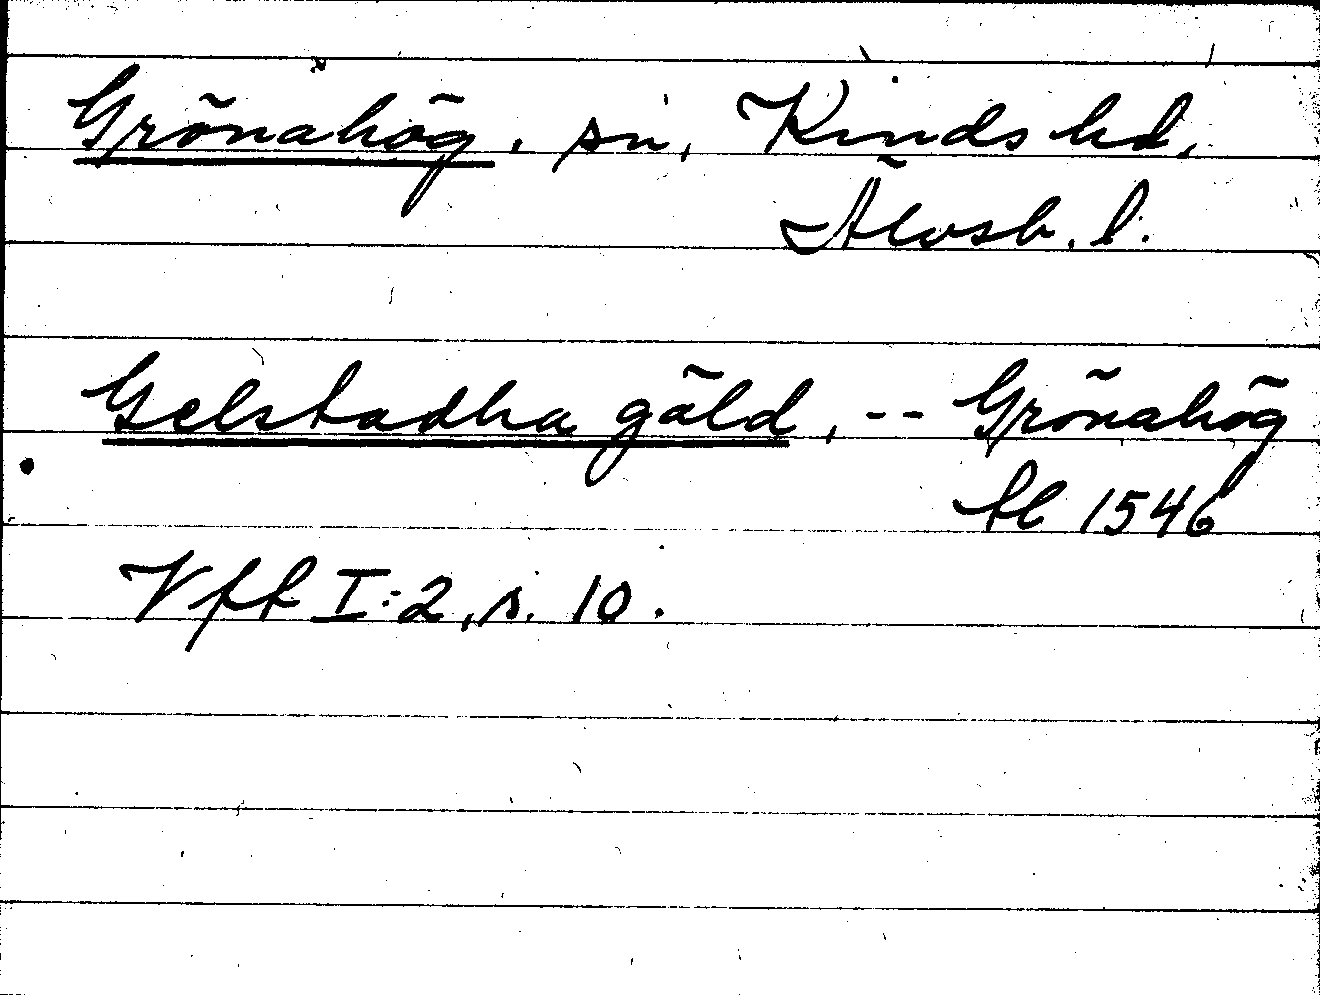 Grönahög, sn, Kinds hd,
Älvsb. l.
Gelstadha gäld, -- Grönahög
1546
Vff I:2, s. 10.